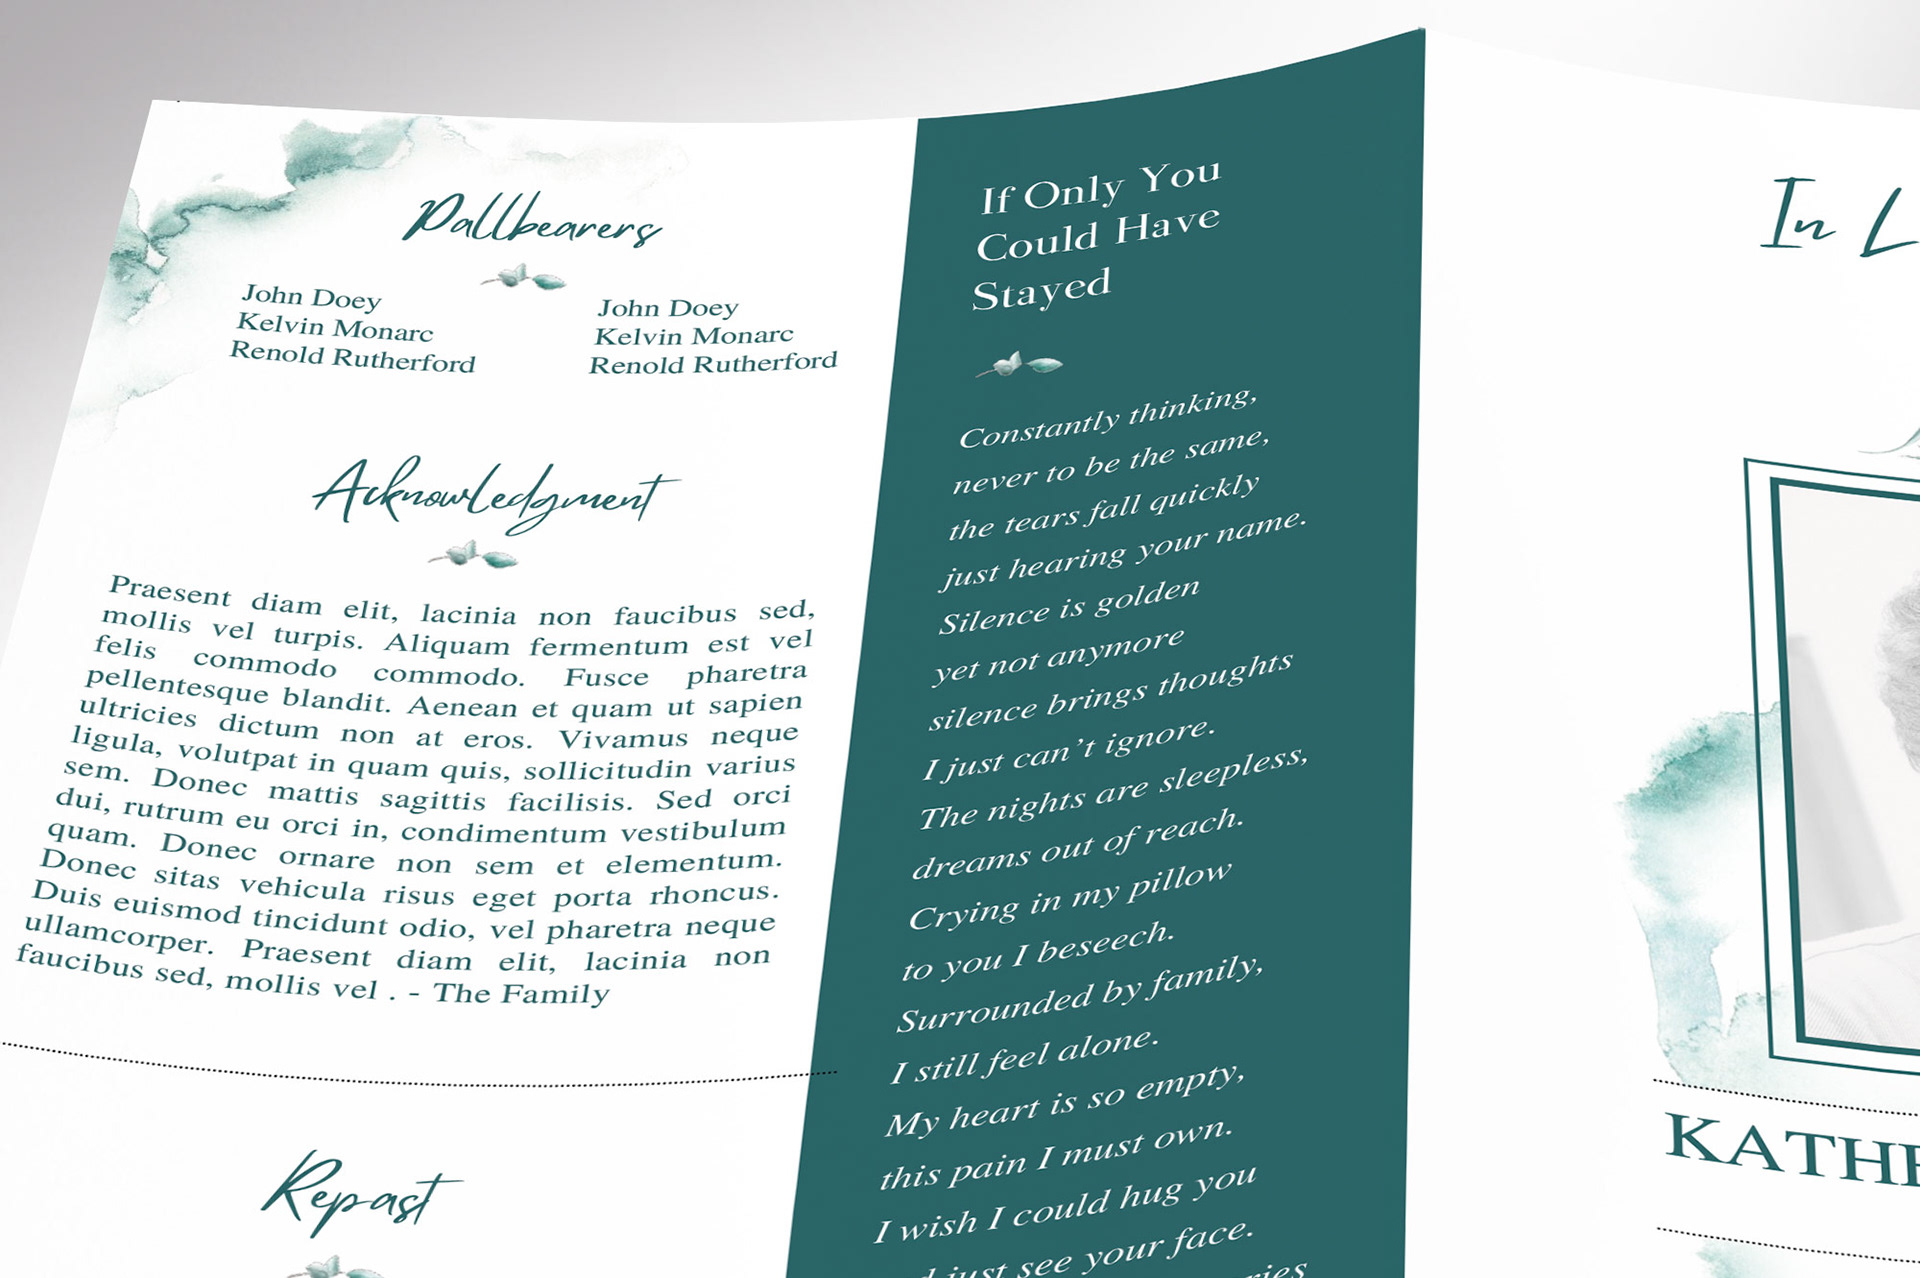 Pallbearers
John Doey
Kelvin Monarc
Renold Rutherford
John Doey
Kelvin Monarc
Renold Rutherford
Acknowledgment
Praesent diam elit, lacinia non faucibus sed,
mollis vel turpis. Aliquam fermentum est vel
felis commodo commodo. Fusce pharetra
pellentesque blandit. Aenean et quam ut sapien
ultricies dictum non at eros. Vivamus neque
ligula, volutpat in quam quis, sollicitudin varius
sem. Donec mattis sagittis facilisis. Sed orci
dui, rutrum eu orci in, condimentum vestibulum
quam. Donec ornare non sem et elementum.
Donec sitas vehicula risus eget porta rhoncus.
Duis euismod tincidunt odio, vel pharetra neque
ullamcorper. Praesent diam elit, lacinia non
faucibus sed, mollis vel . - The Family
Repast
If Only You
Could Have
Stayed
Constantly thinking,
never to be the same,
the tears fall quickly
just hearing your name.
Silence is golden
yet not anymore
silence brings thoughts
I just can't ignore.
The nights are sleepless,
dreams out of reach.
Crying in my pillow
to you I beseech.
Surrounded by family,
I still feel alone.
My heart is so empty,
this pain I must own.
I wish I could hug you
just see your face.
In L
KATHE